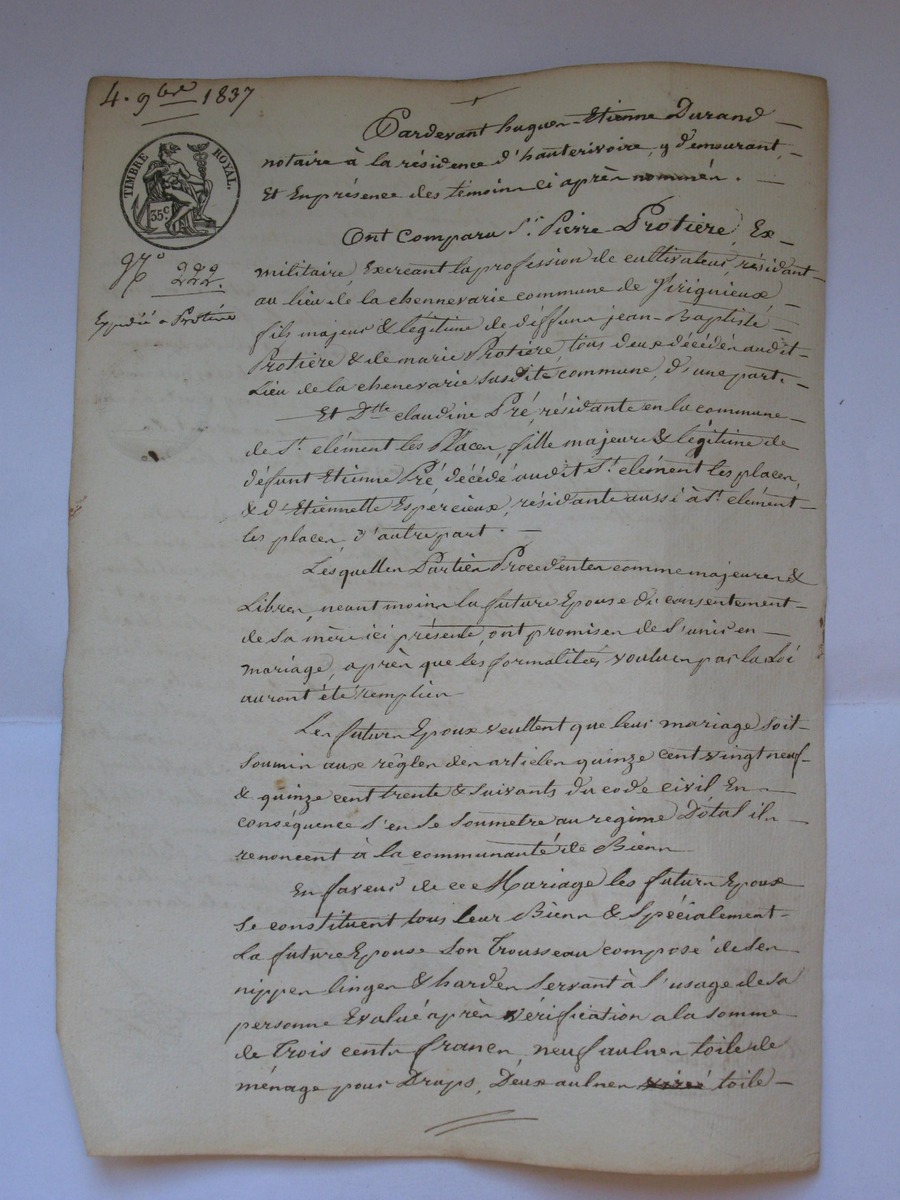 4. 9bre 1837
TIMBRE ROYAL.
35c
N° 222.
Expédié a Protière
Pardevant hugues-Etienne Durand
notaire à la résidence d'hauterivoire, y demourant,
Et En présence des témoins ci après nommés.
Ont comparu Sr. Pierre Protière, Ex-
militaire, Exerçant la profession de cultivateur, résidant
au lieu de la chennevarie commune de Grignieux
fils majeur & légitime de déffuns jean-Baptiste
Protière & de marie Protière, tous deux décédés audit
Lieu de la chenevarie susdite commune, d'une part.
Et Dlle claudine Pré, résidante en la commune
de St. clément les Places, fille majeure & légitime de
défunt Etienne Pré décédé audit St. clément les places,
& d'Etiennette Espércieux, résidante aussi à St. clément
les places, d'autre part.
Lesquelles Parties Procédentes comme majeures &
Libres, neant moins la future Epouse du consentement
de sa mère ici présente, ont promises de s'unir en
mariage, après que les formalités voulues par la Loi
auront été remplies
Les futurs Epoux veullent que leur mariage soit
soumis aux règles des articles quinze cent vingt neuf
& quinze cent trente & suivants du code civil En
conséquence s'en se soumetre au regime Dotal ils
renoncent à la communauté de Biens
En faveur de ce Mariage les futurs Epoux
se constituent tous leur Biens & Spécialement
La future Epouse son Trousseau composé de ses
nippes linges & hardes servant à l'usage de sa
personne Evalué après vérification a la somme
de Trois cents francs, neuf aulnes toile de
ménage pour Draps, Deux aulnes toile